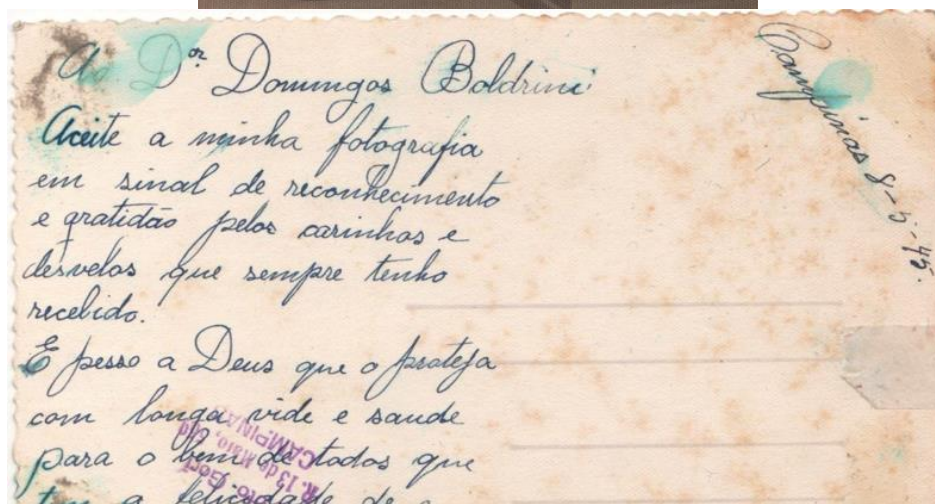 Ao Dr. Domingos Boldrini
Campinas 8-5-45.
Aceite a minha fotografia
em sinal de reconhecimento
e gratidão pelos carinhos e
desvelos que sempre tenho
recebido.
E pesso a Deus que o proteja
com longa vide e saude
para o bem de todos que
a felicidade de o
R. 13 de Maio,
CAMPINAS